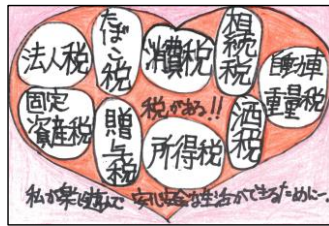 法人税
たばこ税
消費税
相続税
自動車
重量税
固定
資産税
贈与税
税がある!!
所得税
酒税
私が楽しく遊んで 安心安全な生活ができるために…。